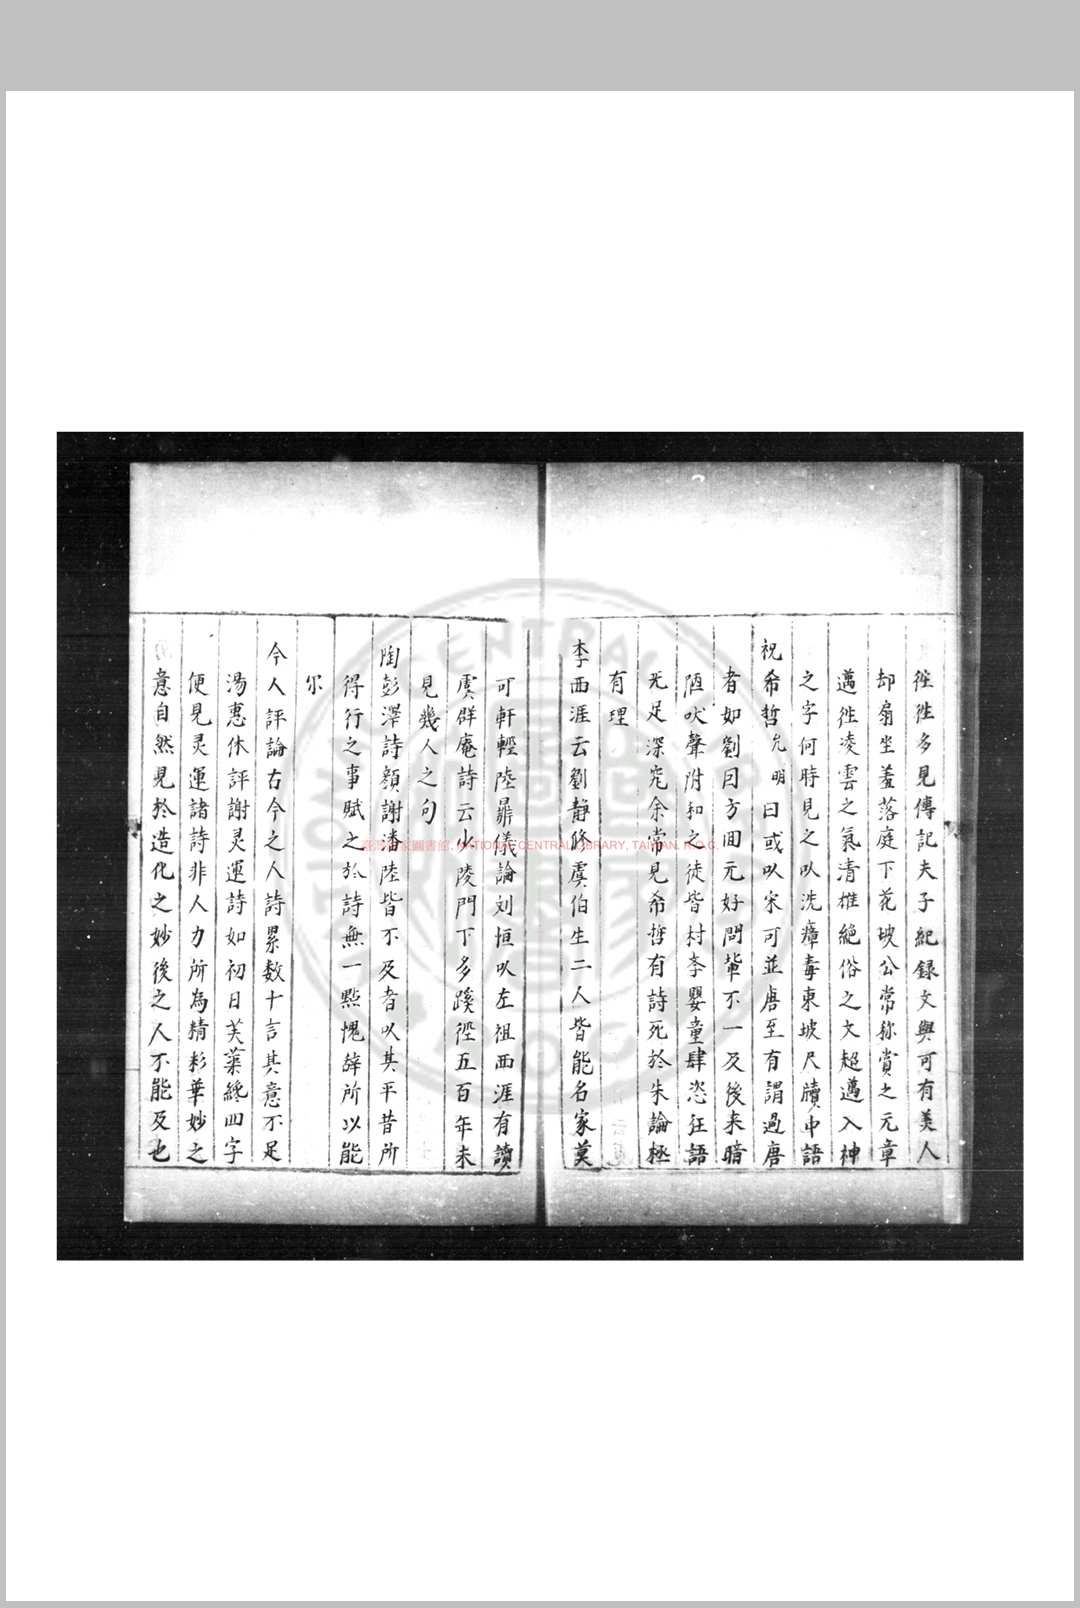 徃徃多見傳記夫子紀録文與可有美人
却扇坐羞落庭下花坡公常称賞之元章
邁徃凌雲之氣清雄絶俗之文超邁入神
之字何時見之以洗瘴毒東坡尺牘中語
祝希哲允明曰或以宋可並唐至有謂過唐
者如劉因方囬元好問軰不一及後来暗
陋吠聲附和之徒皆村李嬰童肆恣狂語
无足深究余常見希哲有詩死於朱論極
有理
李西涯云劉静修虞伯生二人皆能名家莫
可軒輊陸鼐儀論刘恒以左祖西涯有讀
虞群庵詩云少陵門下多蹊徑五百年来
見幾人之句
陶彭澤詩顔謝潘陸皆不及者以其平昔所
得行之事賦之於詩無一點愧辞所以能
尔
今人評論古今之人詩累数十言其意不足
湯惠休評謝灵運詩如初日芙蕖緫四字
便見灵運諸詩非人力所為精彩華妙之
意自然見於造化之妙後之人不能及也
NATIONAL CENTRAL LIBRARY, TAIWAN, R.O.C.